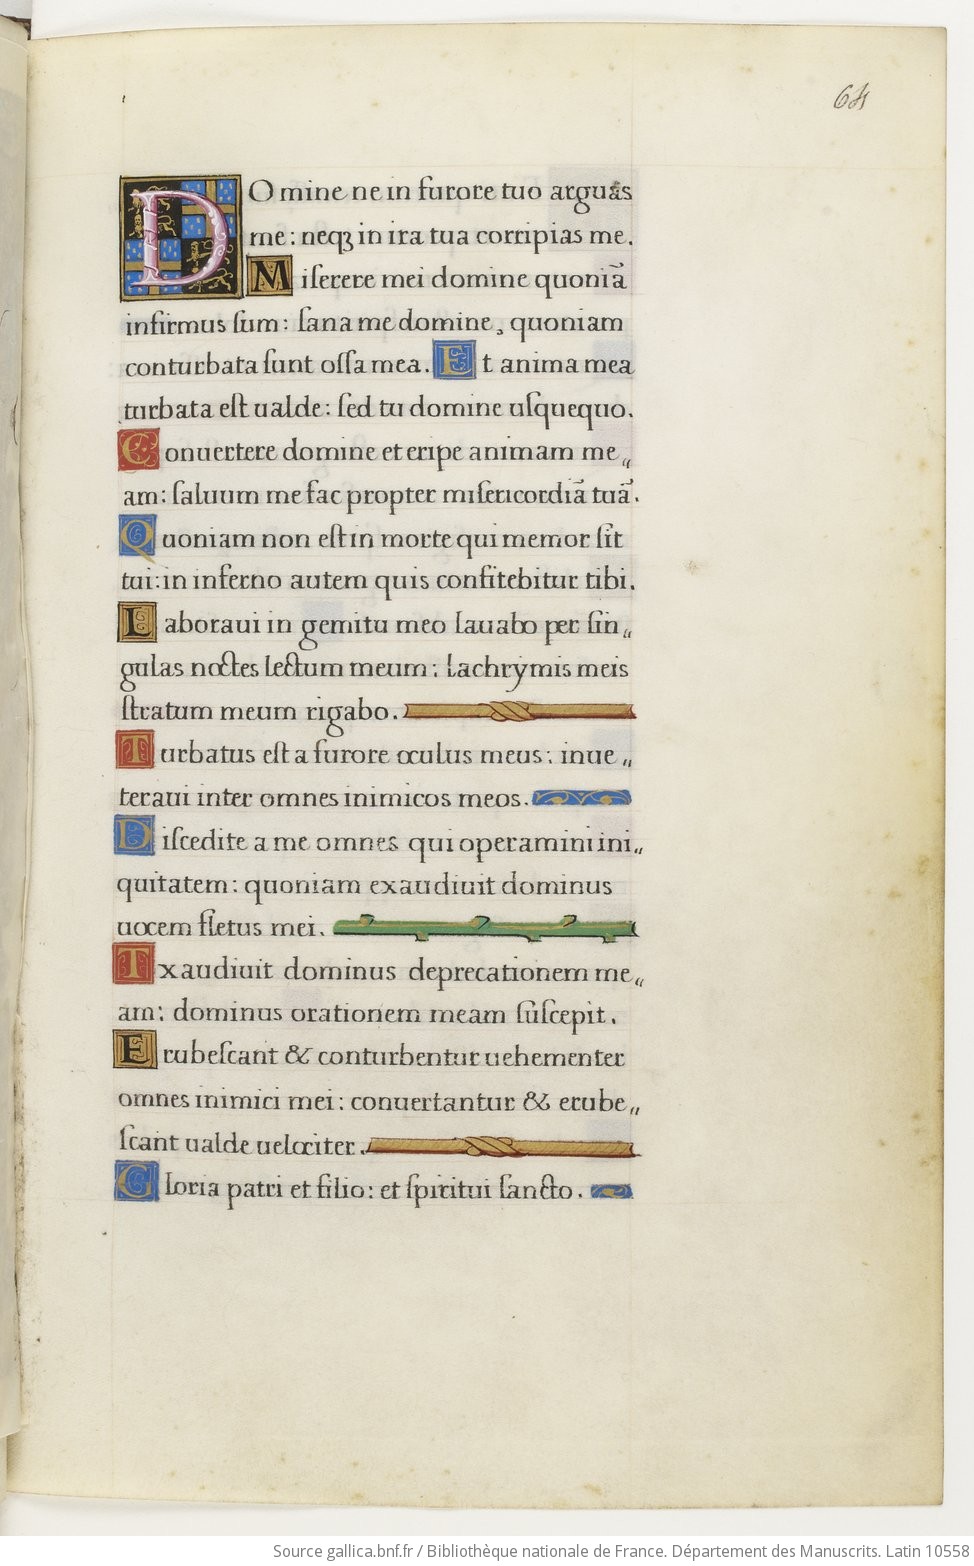 64
DOmine ne in furore tuo arguas
me: neqꝫ in ira tua corripias me.
Miſerere mei domine quoniã
infirmus ſum: ſana me domine, quoniam
conturbata ſunt oſſa mea. Et anima mea
turbata eſt ualde: ſed tu domine uſquequo.
Conuertere domine et eripe animam me„
am: ſaluum me fac propter miſericordiã tuã.
Quoniam non eſt in morte qui memor ſit
tui: in inferno autem quis confitebitur tibi.
Laboraui in gemitu meo lauabo per ſin„
gulas noctes lectum meum: lachrymis meis
ſtratum meum rigabo.
Turbatus eſt a furore oculus meus: inue„
teraui inter omnes inimicos meos.
Diſcedite a me omnes qui operamini ini„
quitatem: quoniam exaudiuit dominus
uocem fletus mei.
Txaudiuit dominus deprecationem me„
am: dominus orationem meam ſuſcepit.
Erubeſcant & conturbentur uehementer
omnes inimici mei: conuertantur & erube„
ſcant ualde uelociter.
Gloria patri et filio: et ſpiritui ſancto.
Source gallica.bnf.fr / Bibliothèque nationale de France. Département des Manuscrits. Latin 10558